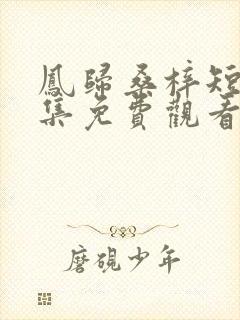 鳳歸桑梓短
集免費觀看
磨硯少年